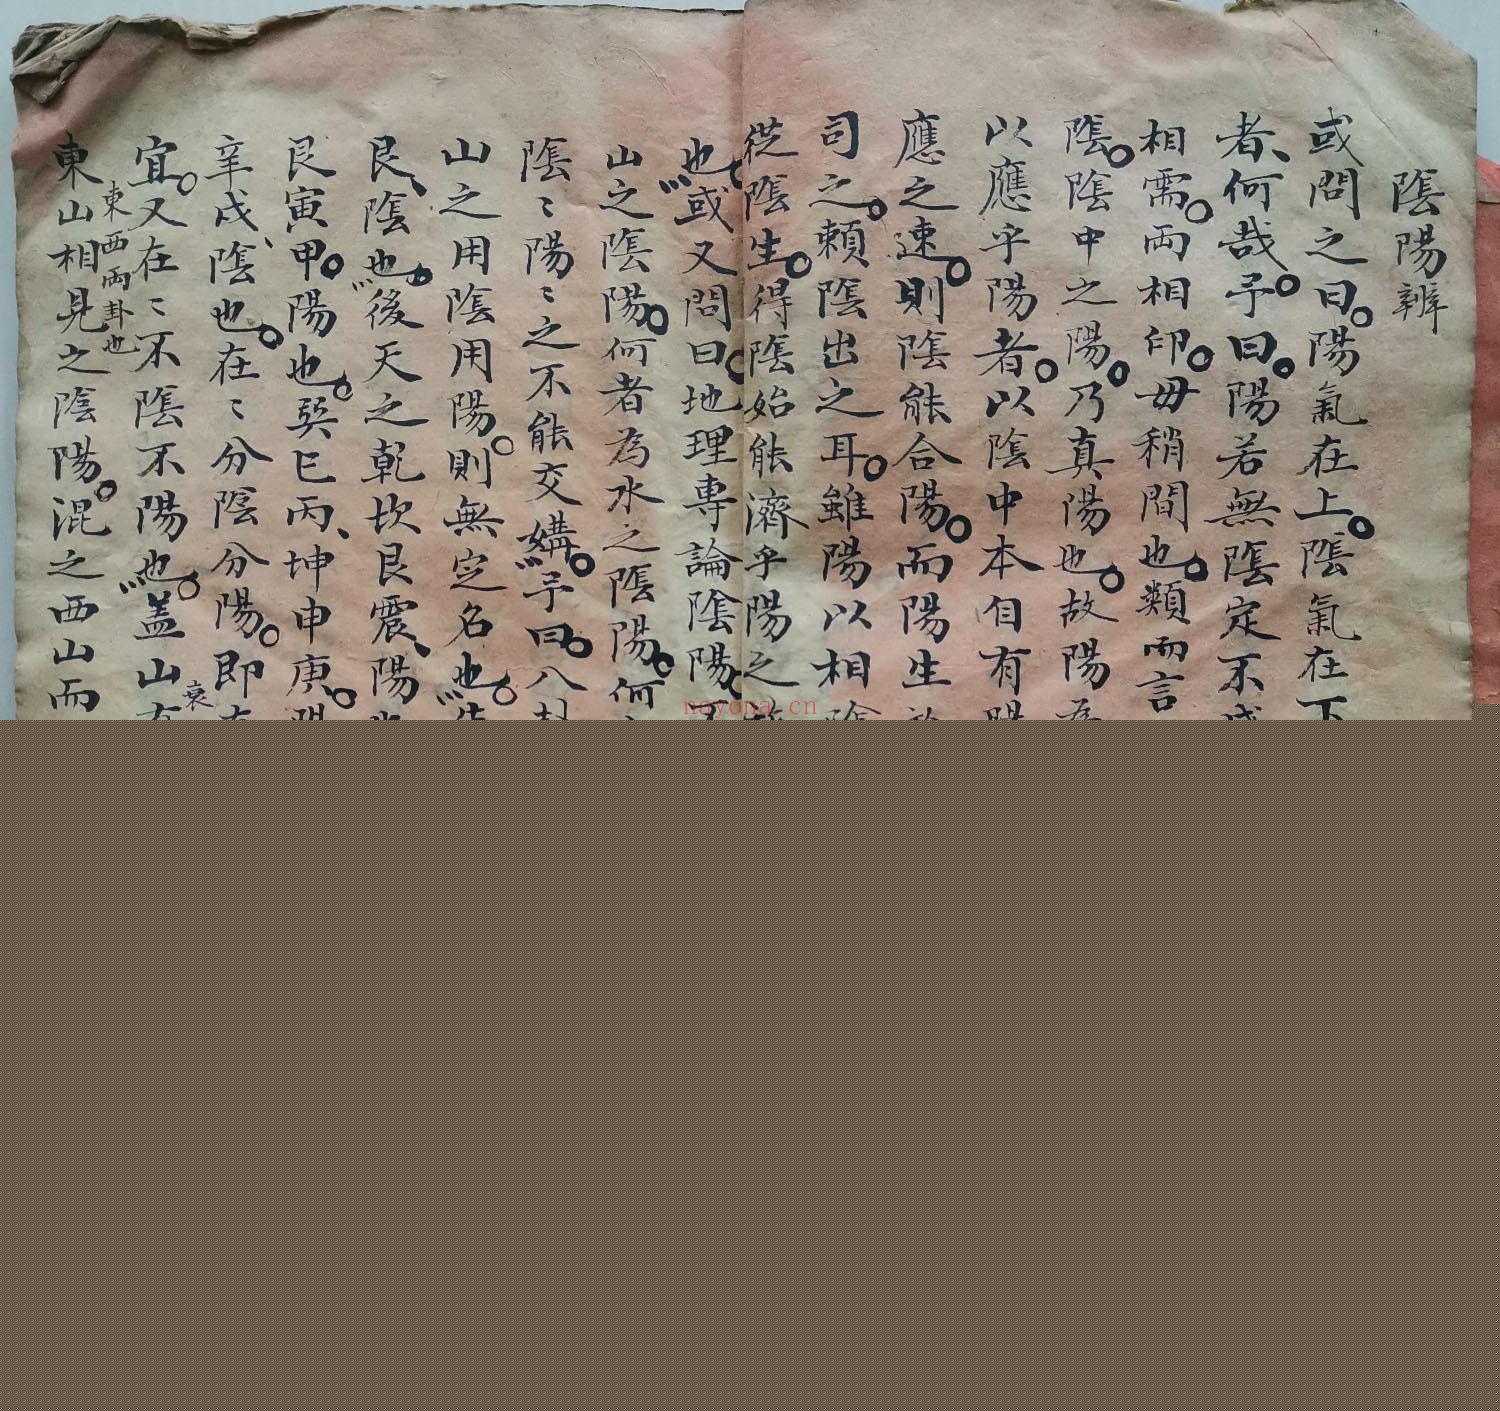 陰陽辨
或問之曰陽氣在上陰氣在下
者何哉予曰陽若無陰定不
相需兩相印毋稍間也類而言
陰陰中之陽乃真陽也故陽
以應乎陽者以陰中本自有
應之速則陰能合陽而陽生
司之賴陰出之耳雖陽以相
從陰生得陰始能濟乎陽之
也或又問曰地理專論陰陽
山之陰陽何者為水之陰陽何
陰〻陽〻之不能交媾予曰八
山之用陰用陽則無定名也
艮陰也後天之乾坎艮震陽
艮寅甲陽也巽巳丙坤申庚
辛戌陰也在〻分陰分陽即
宜又在〻不陰不陽也盖山
東西兩卦也
東山相見之陰陽混之西山而
nayona.cn